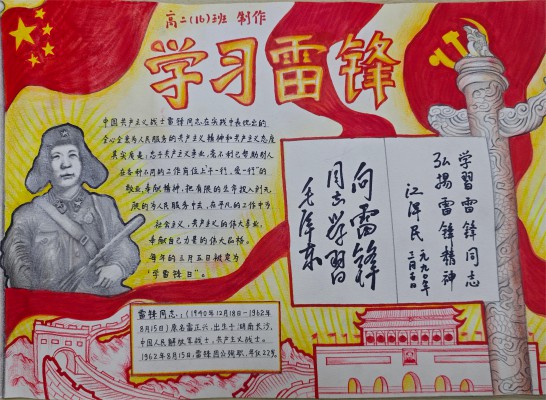 高二(16)班 制作
学习雷锋
中国共产主义战士雷锋同志在实践中表现出的
全心全意为人民服务的共产主义精神和共产主义态度
其实质是:忠于共产主义事业,毫不利己帮助别人
在各种不同的工作岗位上干一行,爱一行的
敬业奉献精神,把有限的生命投入到无
限的为人民服务中去,在平凡的工作中为
社会主义,共产主义的伟大事业,
奉献自己力量的伟大品格。
每年的三月五日被定为
“学雷锋日”。
向雷锋
同志学习
毛泽东
学習雷锋同志
弘揚雷锋精神
江泽民
一九九〇年
雷锋同志:(1940年12月18日-1962年
8月15日)原名雷正兴,出生于湖南长沙,
中国人民解放军战士,共产主义战士。
1962年8月15日,雷锋因公殉职,年仅22岁